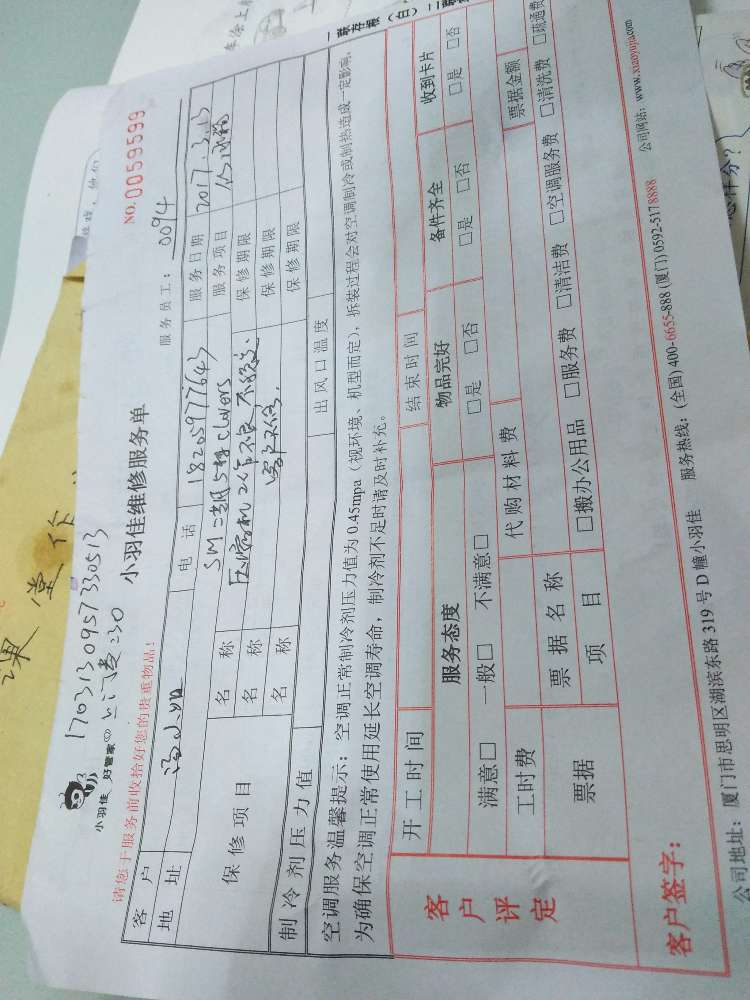 课堂作
170313095733 0513
上门费230
小羽佳 好管家
小羽佳维修服务单
NO.0059599
请您于服务前收拾好您的贵重物品！
服务员工：0094
客户 电话 18205977643 服务日期 2017.3.13
地址 SM二期5楼 clovers 服务项目
保修项目 名称 压缩机工作不良 不稳定 保修期限
名称 客户不修 保修期限
名称 保修期限
制冷剂压力值 出风口温度
空调服务温馨提示：空调正常制冷剂压力值为0.45mpa（视环境、机型而定），拆装过程会对空调制冷或制热造成一定影响，
为确保空调正常使用延长空调寿命，制冷剂不足时请及时补充。
客户评定
开工时间 结束时间
服务态度 物品完好 备件齐全 收到卡片
满意□ 一般□ 不满意□ □是 □否 □是 □否 □是 □否
工时费 代购材料费 票据金额
票据 票据名称项目 □搬办公用品 □服务费 □清洁费 □空调服务费 □清洗费 □疏通费
客户签字：
公司地址：厦门市思明区湖滨东路319号D幢小羽佳 服务热线：(全国)400-6655-888 (厦门)0592-5178888 公司网站：www.xiaoyujia.com